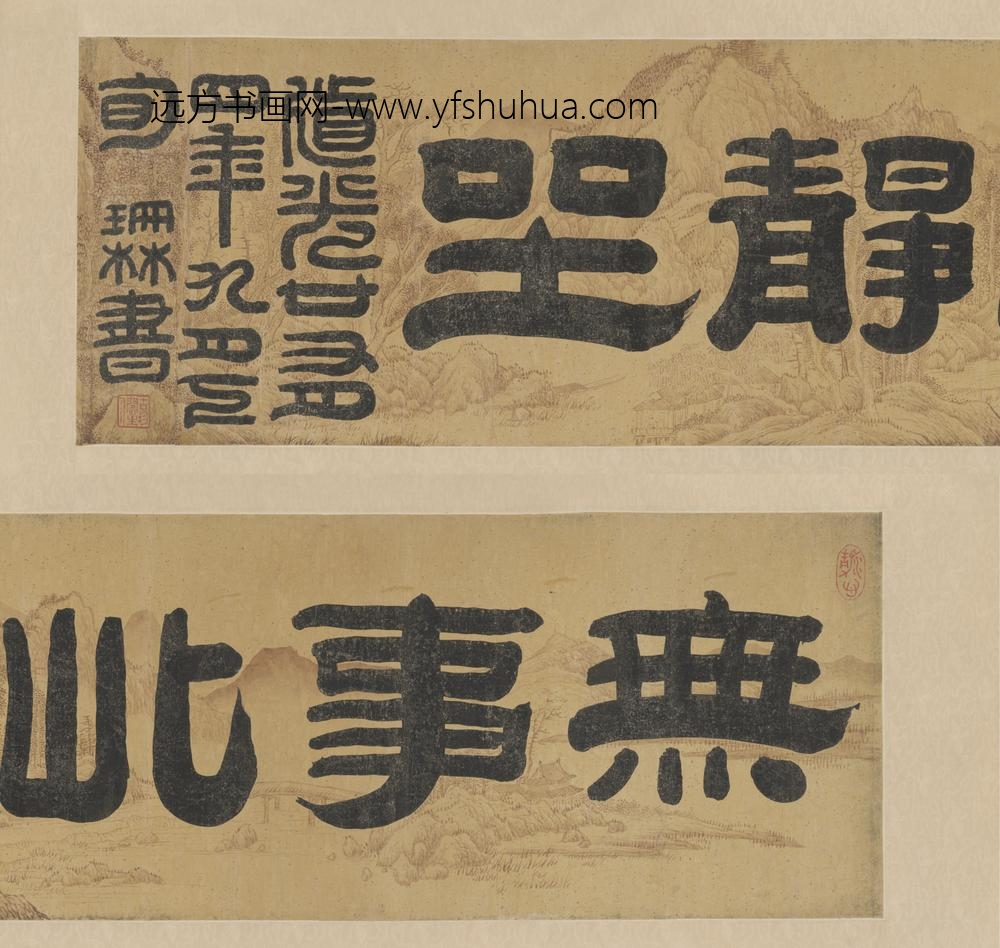 远方书画网-www.yfshuhua.com
無事此
靜坐
道光廿有
四年九月
旬 珊林書